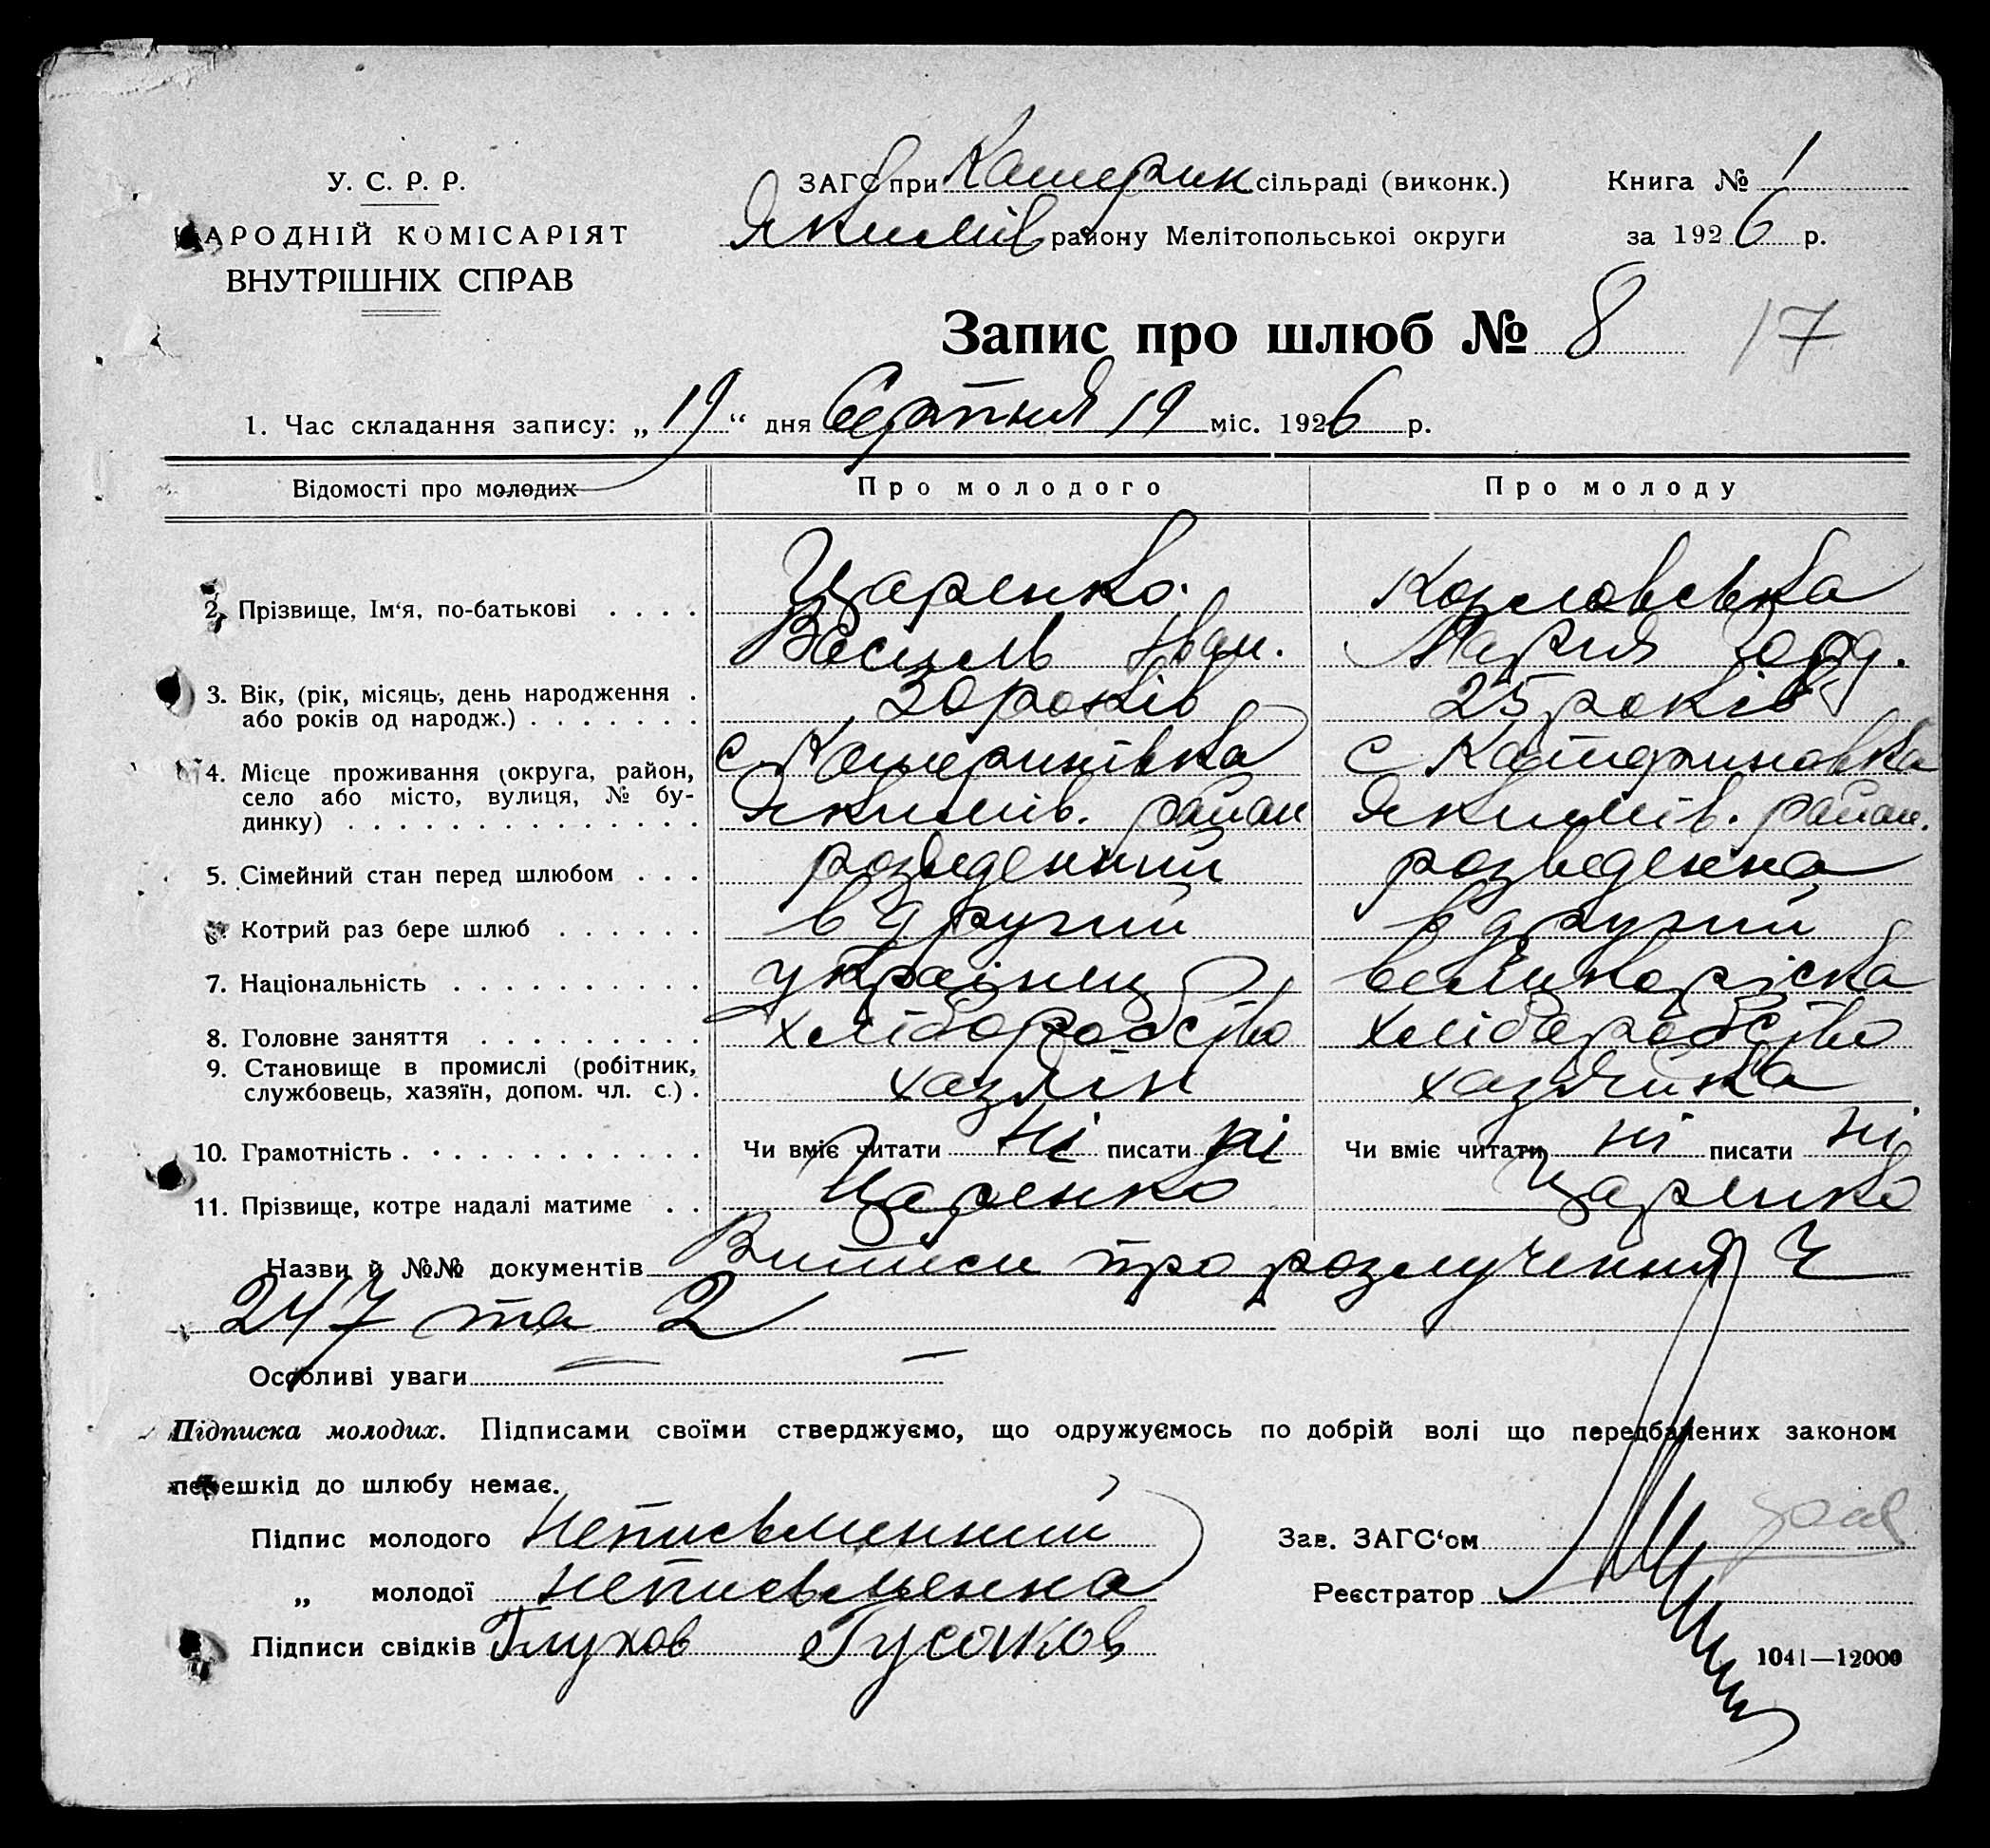 У. С. Р. Р.
НАРОДНІЙ КОМІСАРІЯТ
ВНУТРІШНІХ СПРАВ
ЗАГС при Катерик сільраді (виконк.)
Якимів району Мелітопольськоі округи
Книга № 1
за 1926 р.
Запис про шлюб № 8 17
1. Час складання запису: „19“ дня Серпня 19 міс. 1926 р.
Відомості про молодих Про молодого Про молоду
2. Прізвище, Ім‘я, по-батькові . . . . Царенко. Козловська
Василь Іван. Мария
3. Вік, (рік, місяць, день народження . 30 років 25 років
або років од народж.) . . . . . . .
4. Місце проживання (округа, район, с Катеринівка с Катериновка
село або місто, вулиця, № бу-
динку) . . . . . . . . . . . . . . Якимів. район Якимів. район.
5. Сімейний стан перед шлюбом . . . розведений розведенна
6. Котрий раз бере шлюб . . . . . . в другий в другий
7. Національність . . . . . . . . . . українец великоріска
8. Головне заняття . . . . . . . . . хліборобство хліборобство
9. Становище в промислі (робітник,
службовець, хазяїн, допом. чл. с.) . хазяін хазяйка
10. Грамотність . . . . . . . . . . . . Чи вміє читати ні писати ні Чи вміє читати ні писати ні
11. Прізвище, котре надалі матиме . . Царенко Царенко
Назви й №№ документів Виписи про розлучення Ч
247 та 2
Особливі уваги
Підписка молодих. Підписами своїми стверджуємо, що одружуємось по добрій волі що передбачених законом
перешкід до шлюбу немає.
Підпис молодого Неписьменний
„ молодої неписьменна
Підписи свідків Глухов Гусаков
Зав. ЗАГС‘ом
Реєстратор
1041—12000